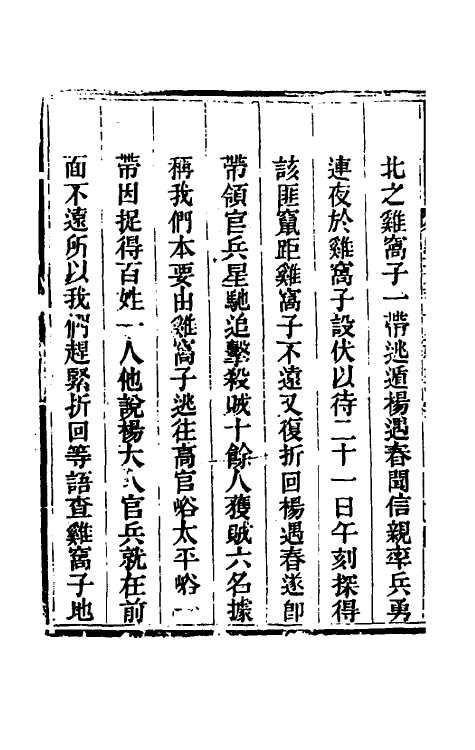 北之雞窩子一帶逃遁楊遇春聞信親率兵勇
連夜於雞窩子設伏以待二十一日午刻探得
該匪竄距雞窩子不遠又復折回楊遇春遂卽
帶領官兵星馳追擊殺賊十餘人獲賊六名據
稱我們本要由雞窩子逃往高官峪太平峪一
帶因捉得百姓一人他說楊大人官兵就在前
面不遠所以我們趕緊折回等語查雞窩子地